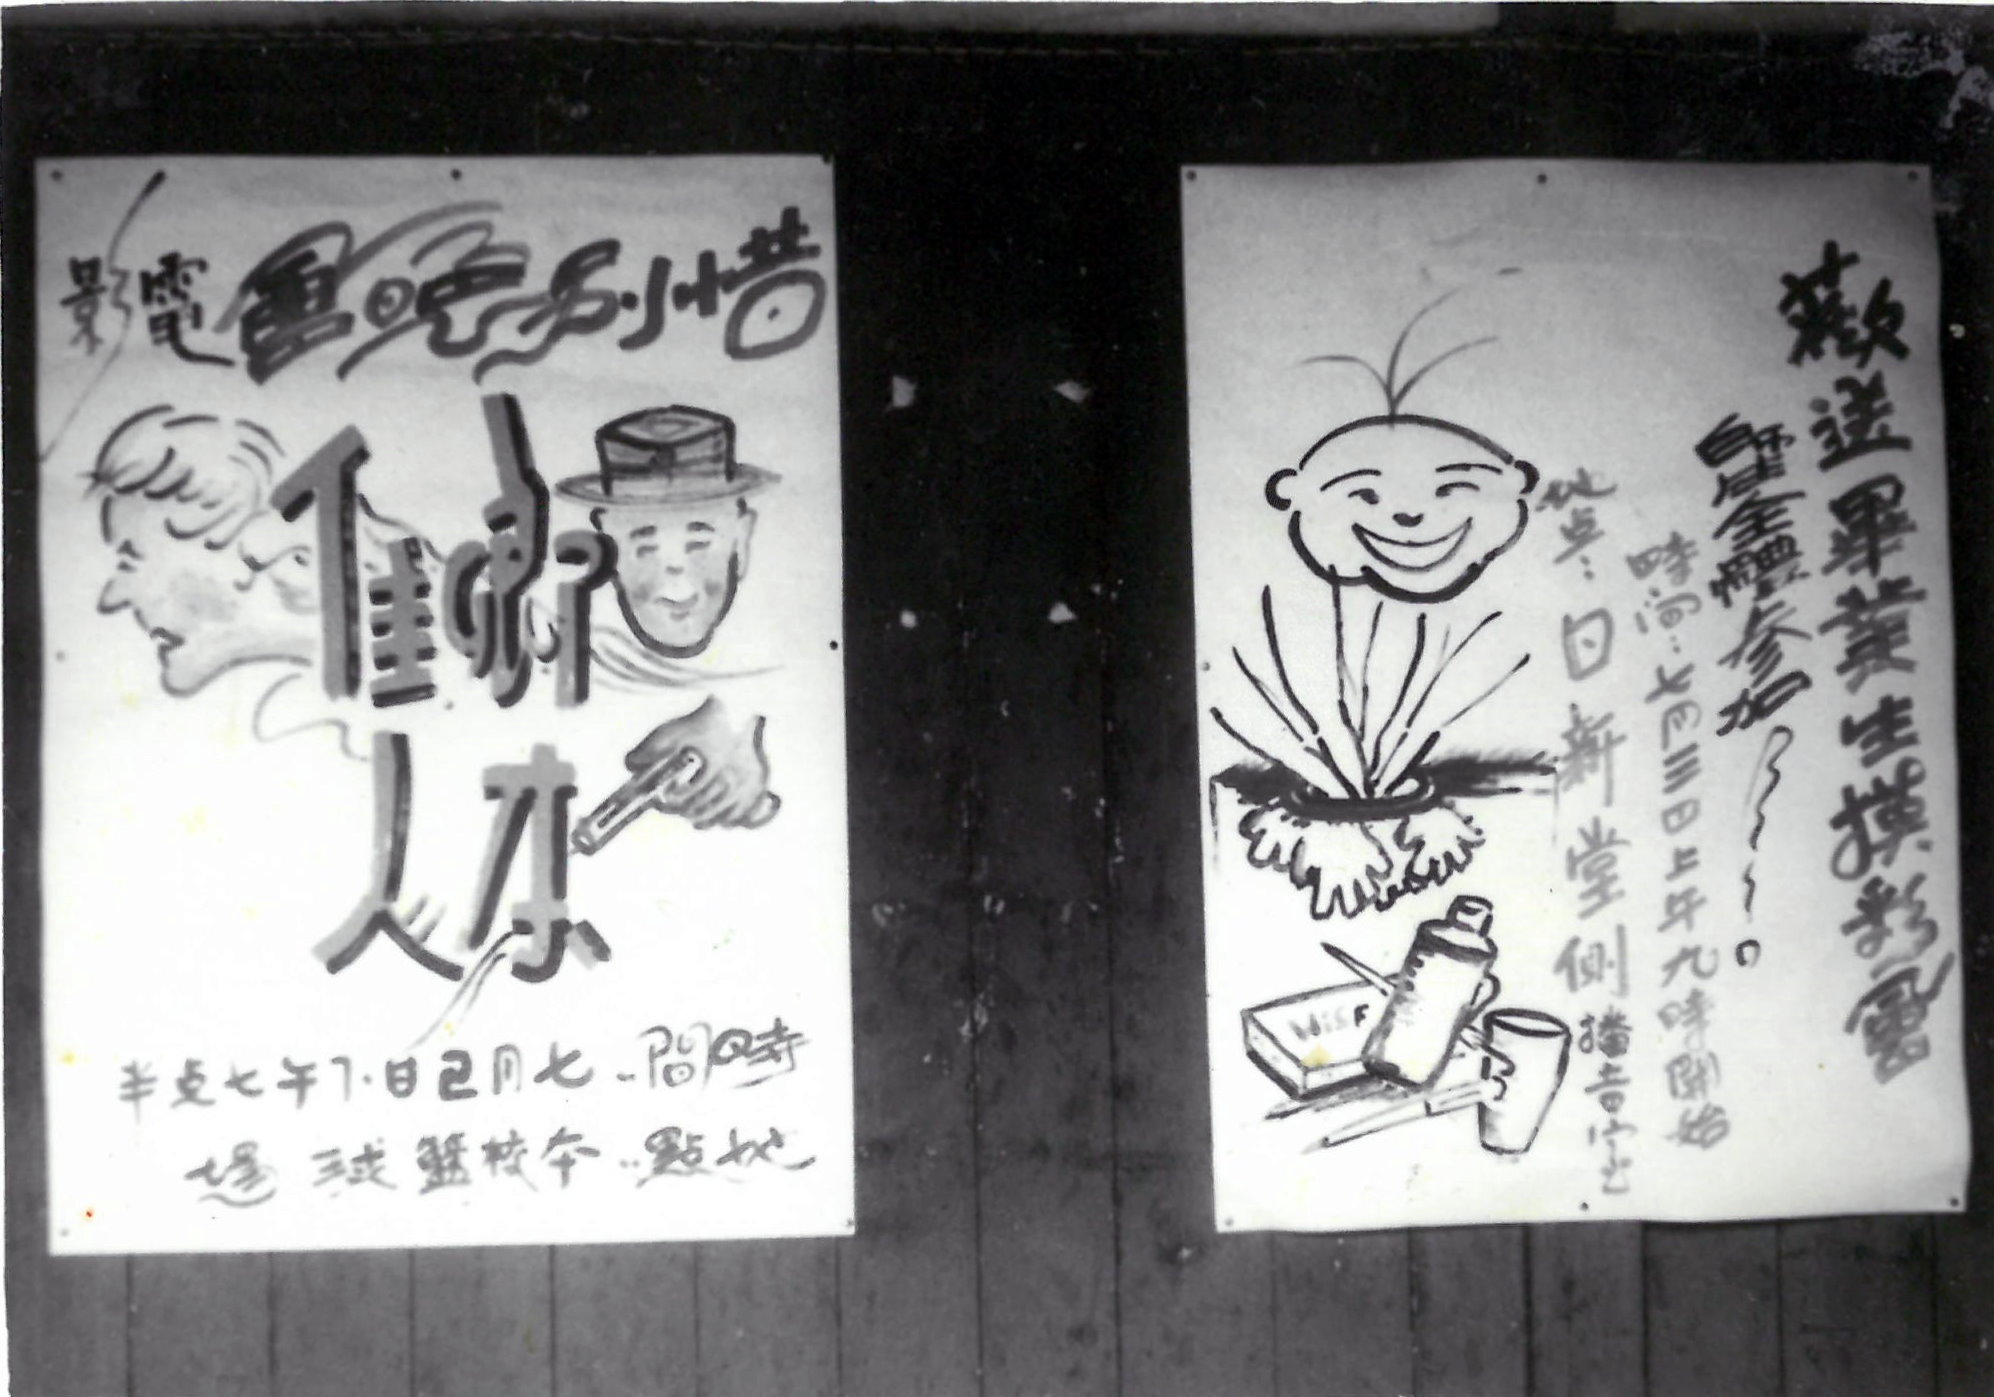 惜別晚會 電影
卿本
佳人
時間：七月2日．下午七点半
地點：本校籃球場
歡送畢業生摸彩會
師生全體參加
時间：七月三日上午九時開始
地点：日新堂側播音室
MISF